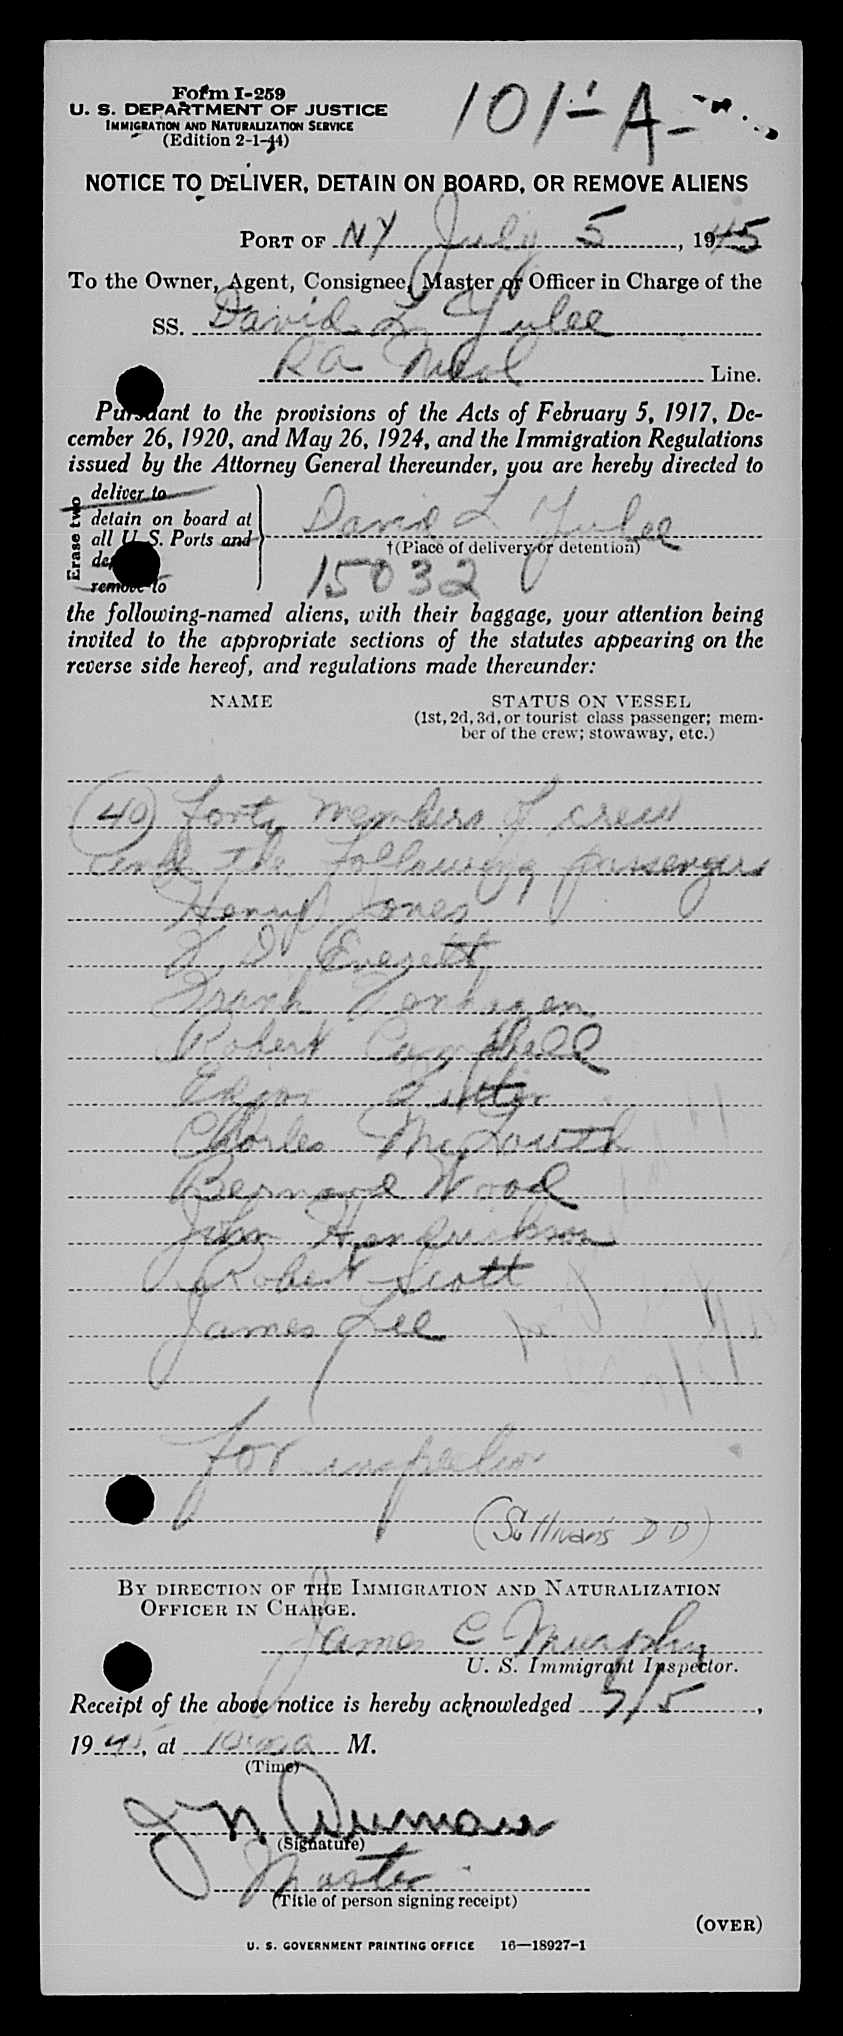 Form I-259
U. S. DEPARTMENT OF JUSTICE
IMMIGRATION AND NATURALIZATION SERVICE
(Edition 2-1-44)
101-A-
NOTICE TO DELIVER, DETAIN ON BOARD, OR REMOVE ALIENS
PORT OF NY July 5, 1945
To the Owner, Agent, Consignee, Master or Officer in Charge of the
SS. David L Yulee
Line.
Pursuant to the provisions of the Acts of February 5, 1917, De-
cember 26, 1920, and May 26, 1924, and the Immigration Regulations
issued by the Attorney General thereunder, you are hereby directed to
Erase two
deliver to
detain on board at
all U. S. Ports and
remove to
David L Yulee
†(Place of delivery or detention)
15032
the following-named aliens, with their baggage, your attention being
invited to the appropriate sections of the statutes appearing on the
reverse side hereof, and regulations made thereunder:
NAME STATUS ON VESSEL
(1st, 2d, 3d, or tourist class passenger; mem-
ber of the crew; stowaway, etc.)
(40) forty members of crew
and the following passengers
Henry Jones
Everett
Frank
Robert Campbell
Charles
Bernard Wood
John Hendrickson
Robert Scott
James Lee
for inspection
(Sullivan's D D)
BY DIRECTION OF THE IMMIGRATION AND NATURALIZATION
OFFICER IN CHARGE.
James C Murphy
U. S. Immigrant Inspector.
Receipt of the above notice is hereby acknowledged 5/5,
1945, at M.
(Time)
(Signature)
Master
(Title of person signing receipt)
(OVER)
U. S. GOVERNMENT PRINTING OFFICE 16—18927-1